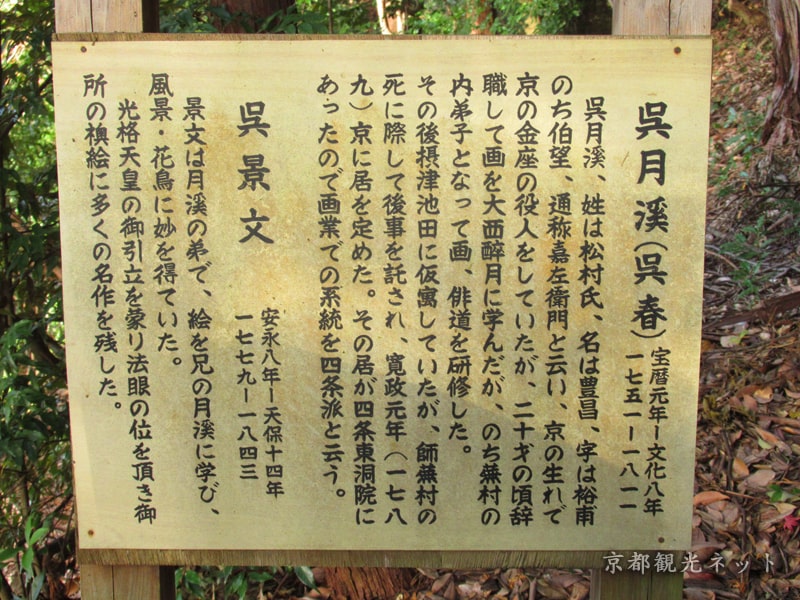 呉月溪(呉春)
宝暦元年ー文化八年
一七五一ー一八一一
呉月溪、姓は松村氏、名は豊昌、字は裕甫
のち伯望、通称嘉左衛門と云い、京の生れで
京の金座の役人をしていたが、二十才の頃辞
職して画を大西酔月に学んだが、のち蕪村の
内弟子となって画、俳道を研修した。
その後摂津池田に仮寓していたが、師蕪村の
死に際して後事を託され、寛政元年(一七八
九)京に居を定めた。その居が四条東洞院に
あったので画業での系統を四条派と云う。
呉景文
安永八年ー天保十四年
一七七九ー一八四三
景文は月溪の弟で、絵を兄の月溪に学び、
風景・花鳥に妙を得ていた。
光格天皇の御引立を蒙り法眼の位を頂き御
所の襖絵に多くの名作を残した。
京都観光ネット